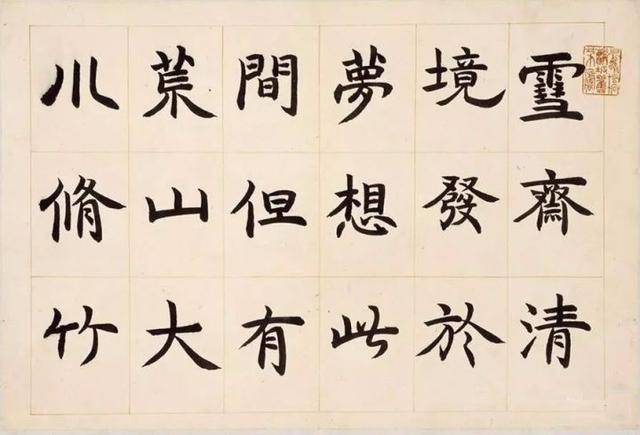 雪齋清
境發於
夢想此
間但有
荒山大
川脩竹